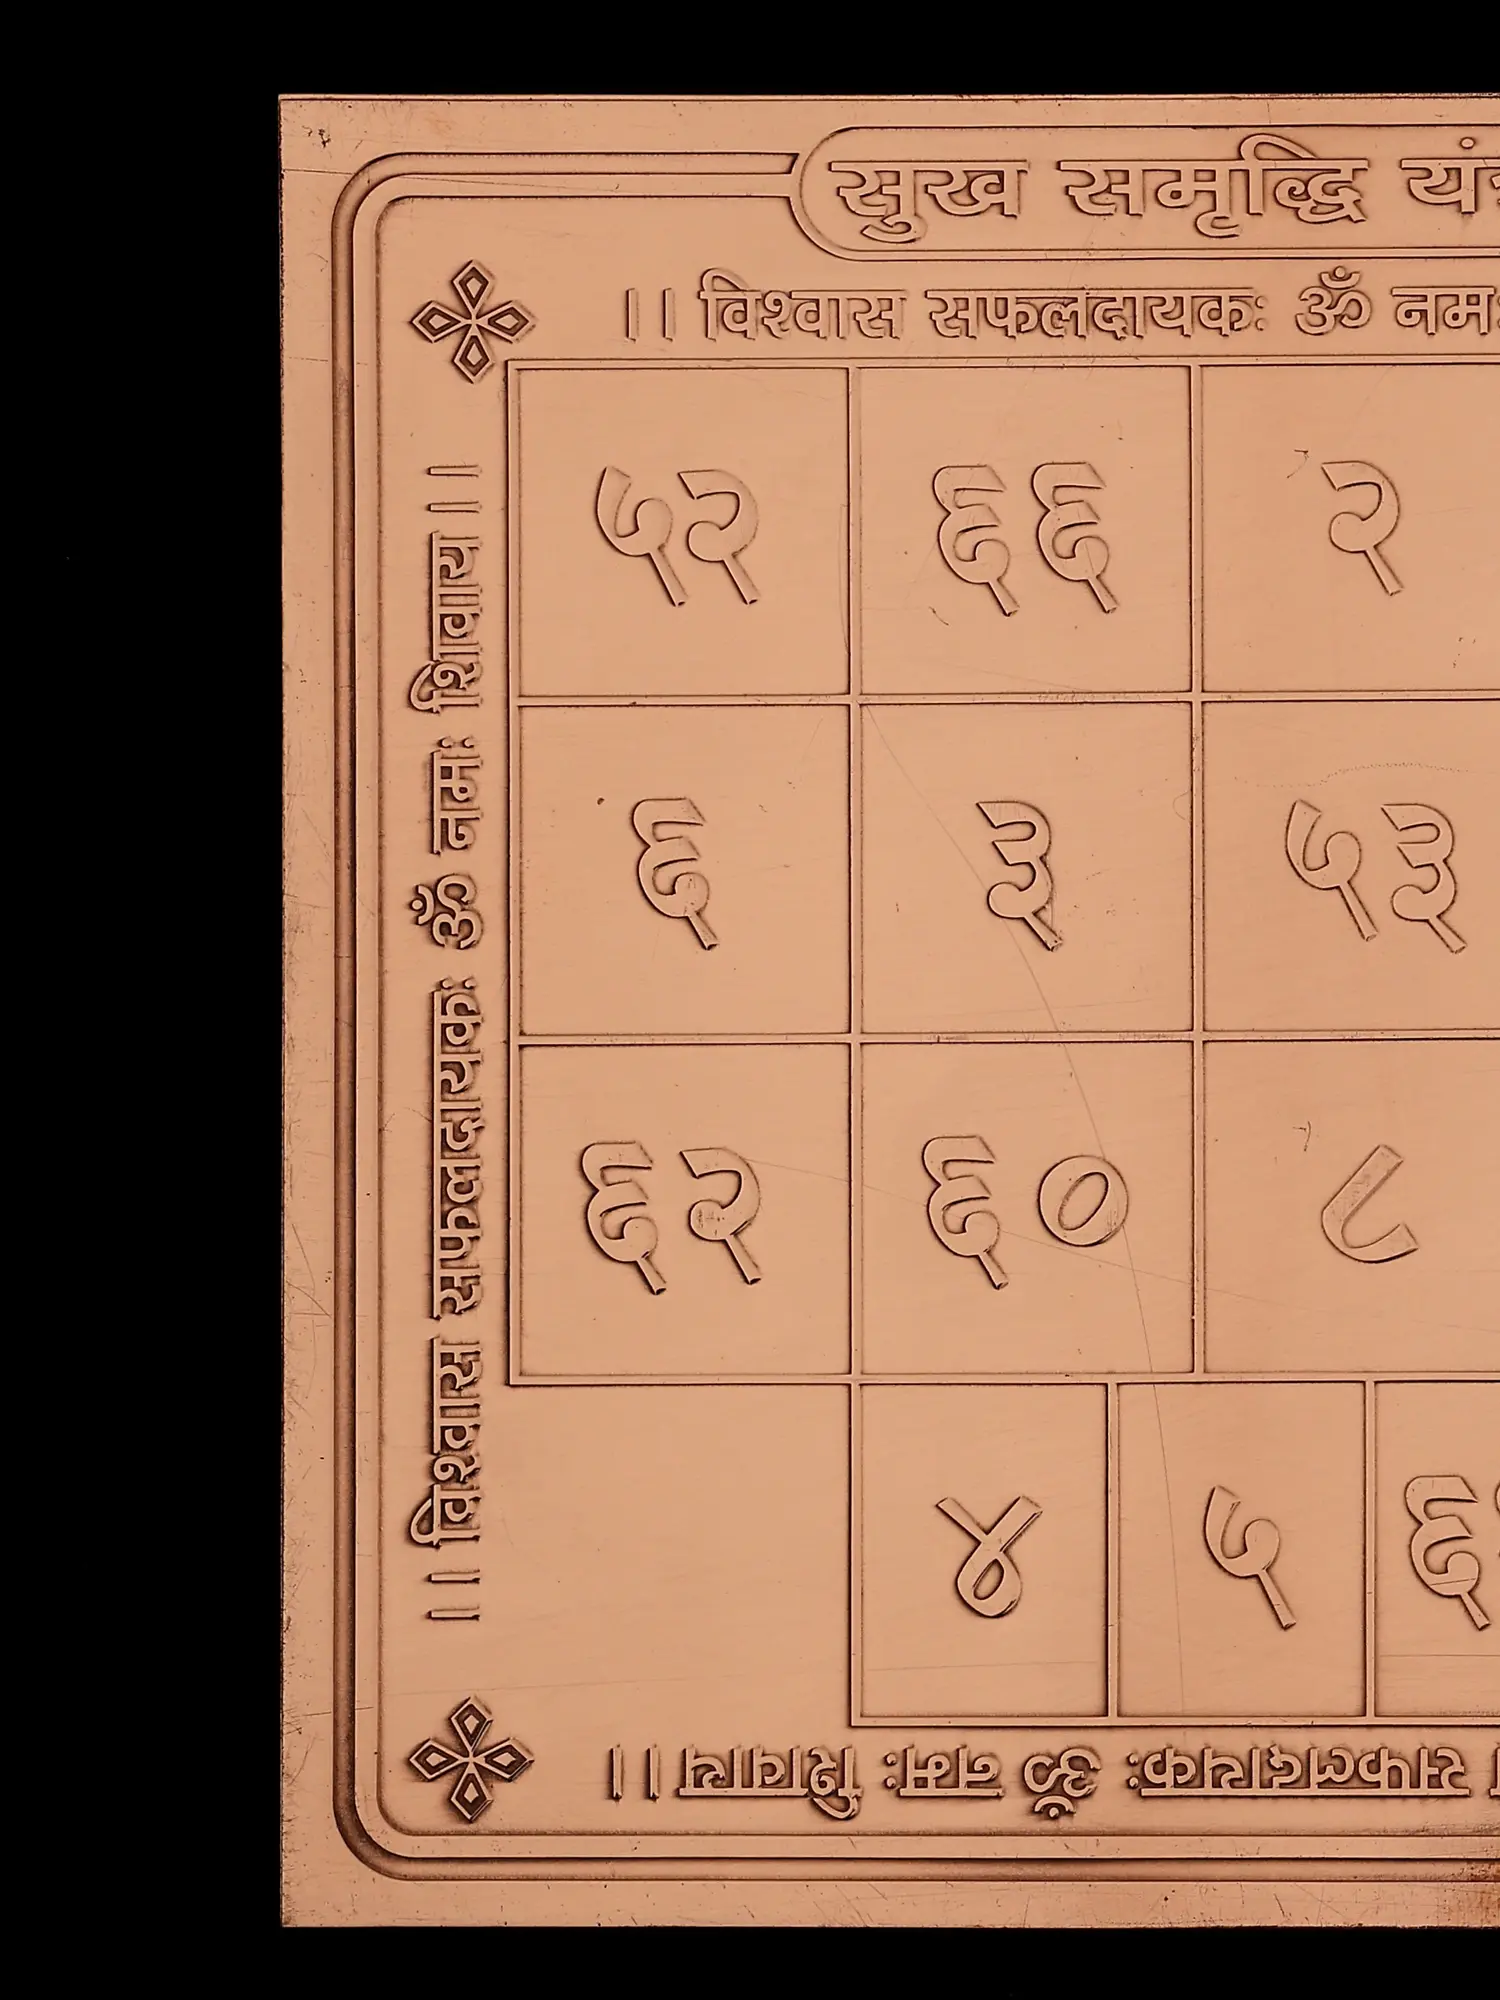 सुख समृद्धि यंत्र
।। विश्वास सफलदायकः ॐ नमः
।। विश्वास सफलदायकः ॐ नमः शिवाय ।।
५२ ६६ २
६ ३ ५३
६२ ६० ८
४ ५ ६
सफलदायकः ॐ नमः शिवाय ।।